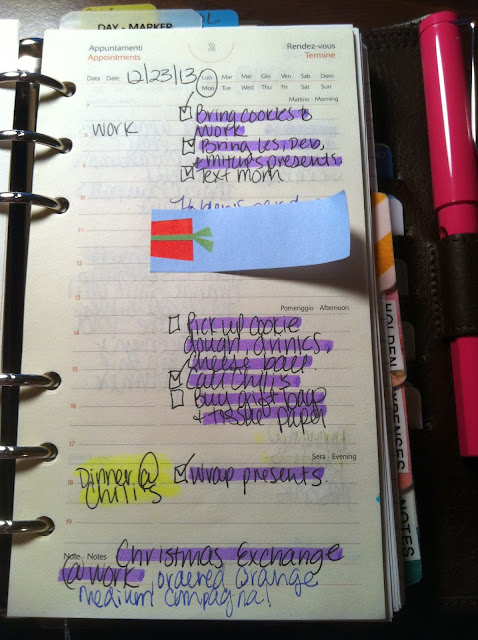 DAY - MARKER
Appuntamenti
Appointments
2
Rendez-vous
Termine
Data - Date 12/23/13 Lun Mar Mer Gio Ven Sab Dom
Mon Tue Wed Thu Fri Sat Sun
Mattino - Morning
Bring cookies to
work
work
Bring Les, Deb,
presents
Text mom
10
11
12
13
Pomeriggio - Afternoon
14
Pick up cookie
dough, drinks,
cheese ball
15
Call Chilis
Buy gift bag
16
+ tissue paper
17
Sera - Evening
Dinner @
Chili's
18
Wrap presents
19
Note - Notes
Christmas Exchange
@ work
ordered orange
medium compagna!
HOLDEN
EXPENSES
NOTES